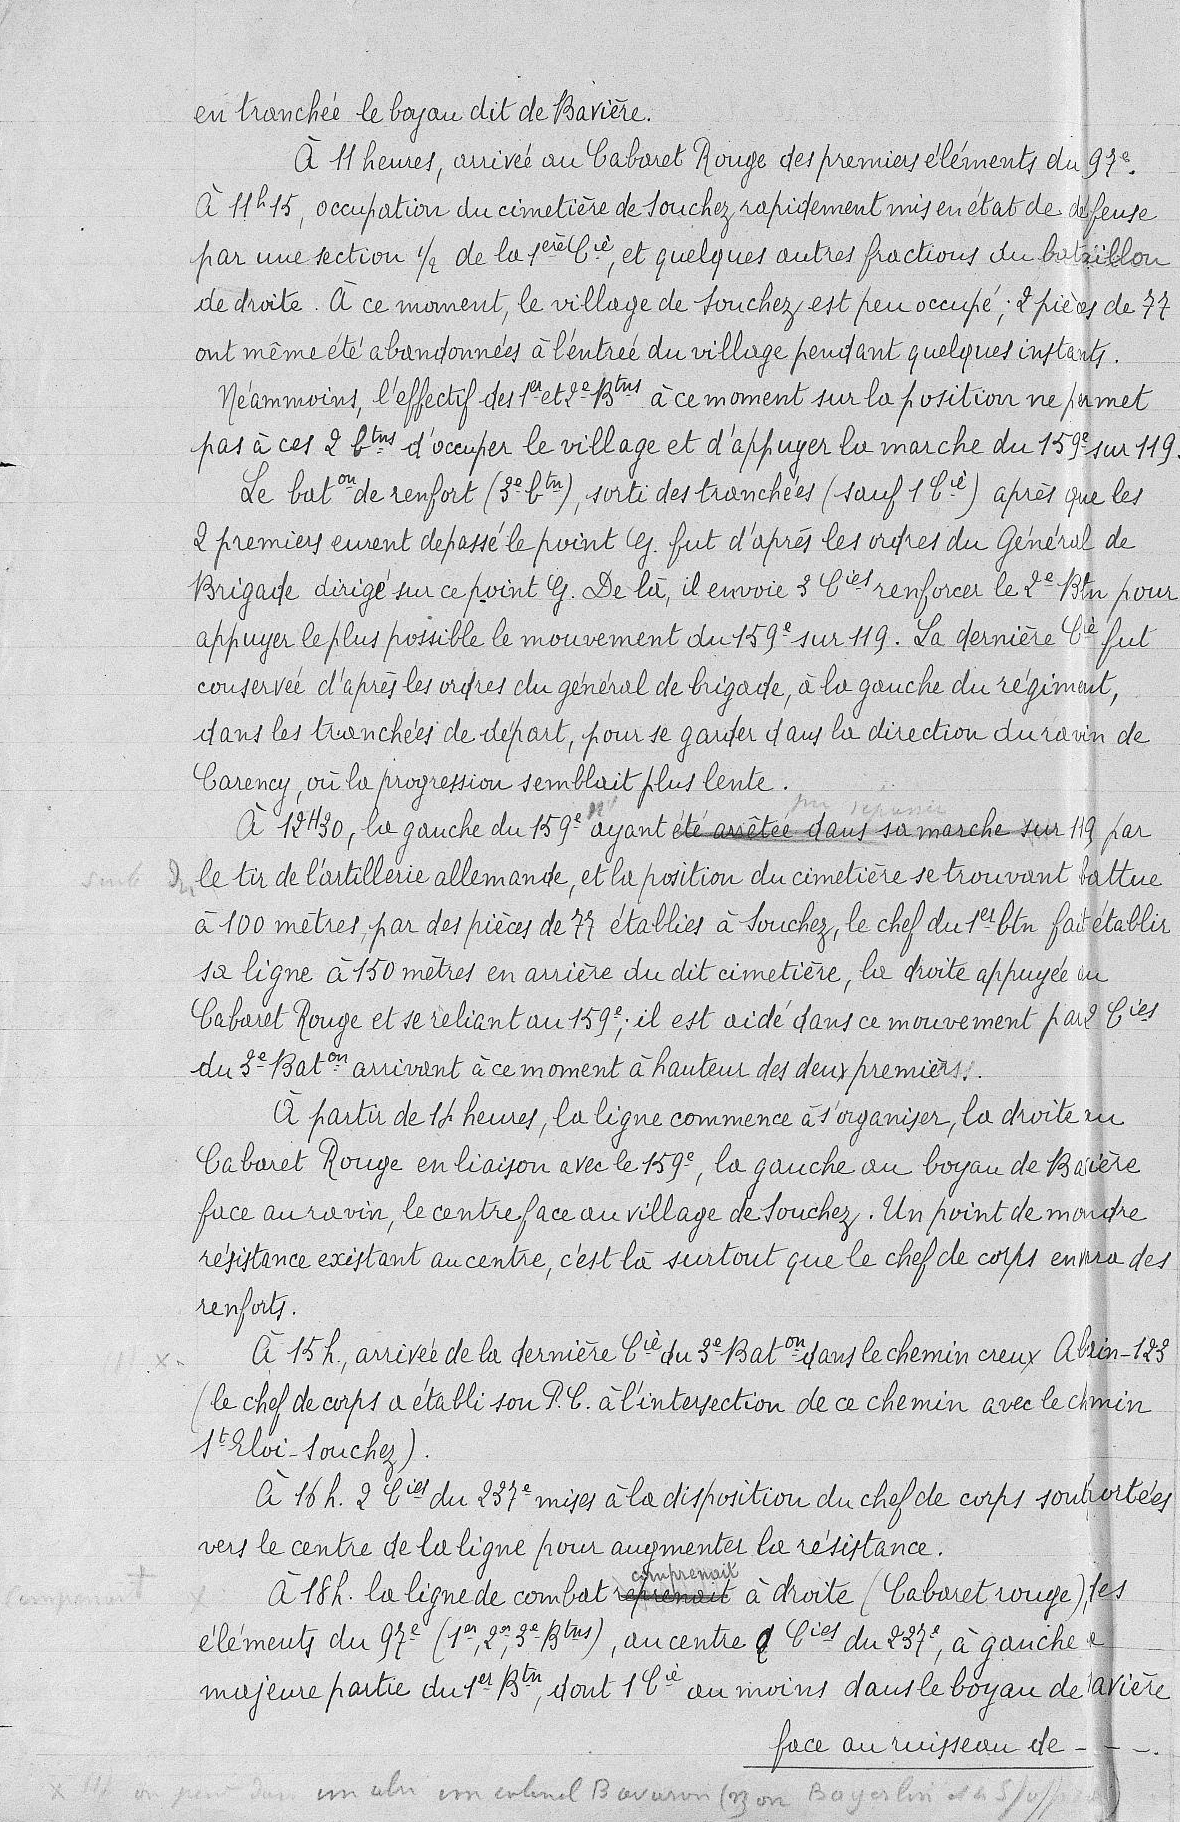 en tranchée le boyau dit de Bavière.
À 11 heures, arrivée au Cabaret Rouge des premiers éléments du 97e.
À 11h15, occupation du cimetière de Souchez rapidement mis en état de défense
par une section 1/2 de la 1ère Cie, et quelques autres fractions du bataillon
de droite. À ce moment, le village de Souchez est peu occupé; 2 pièces de 77
ont même été abandonnées à l'entrée du village pendant quelques instants.
Néammoins, l'effectif des 1er et 2e Btns à ce moment sur la position ne permet
pas à ces 2 btns d'occuper le village et d'appuyer la marche du 159e sur 119.
Le baton de renfort (3e btn), sorti des tranchées (sauf 1 Cie) après que les
2 premiers eurent depassé le point G. fut d'après les ordres du Général de
Brigade dirigé sur ce point G. De là, il envoie 3 Cies renforcer le 2e Btn pour
appuyer le plus possible le mouvement du 159e sur 119. La dernière Cie fut
conservée d'après les ordres du général de brigade, à la gauche du régiment,
dans les tranchées de départ, pour se garder dans la direction du ravin de
Carency, où la progression semblait plus lente.
À 12H30, la gauche du 159e ayant été arrêtée dans sa marche sur 119 par
le tir de l'artillerie allemande, et la position du cimetière se trouvant battue
à 100 mètres, par des pièces de 77 établies à Souchez, le chef du 1er btn fait établir
sa ligne à 150 mètres en arrière du dit cimetière, la droite appuyée au
Cabaret Rouge et se reliant au 159e; il est aidé dans ce mouvement par 2 Cies
du 3e Baton arrivant à ce moment à hauteur des deux premiers.
À partir de 14 heures, la ligne commence à s'organiser, la droite au
Cabaret Rouge en liaison avec le 159e, la gauche au boyau de Bavière
face au ravin, le centre face au village de Souchez. Un point de moindre
résistance existant au centre, c'est là surtout que le chef de corps enverra des
renforts.
x. À 15 h., arrivée de la dernière Cie du 3e Baton dans le chemin creux Ablain-123
(le chef de corps a établi son P.C. à l'intersection de ce chemin avec le chemin
St Eloi-Souchez).
À 16 h. 2 Cies du 237e mises à la disposition du chef de corps sont portées
vers le centre de la ligne pour augmenter la résistance.
comprenait
comprenait x À 18h. la ligne de combat reprenait à droite (Cabaret rouge), les
éléments du 97e (1er, 2e, 3e Btns), au centre 2 Cies du 237e, à gauche la
majeure partie du 1er Btn, dont 1 Cie au moins dans le boyau de Bavière
face au ruisseau de - - -.
x on dans un abri un colonel Bavarois (von Bayerlin et